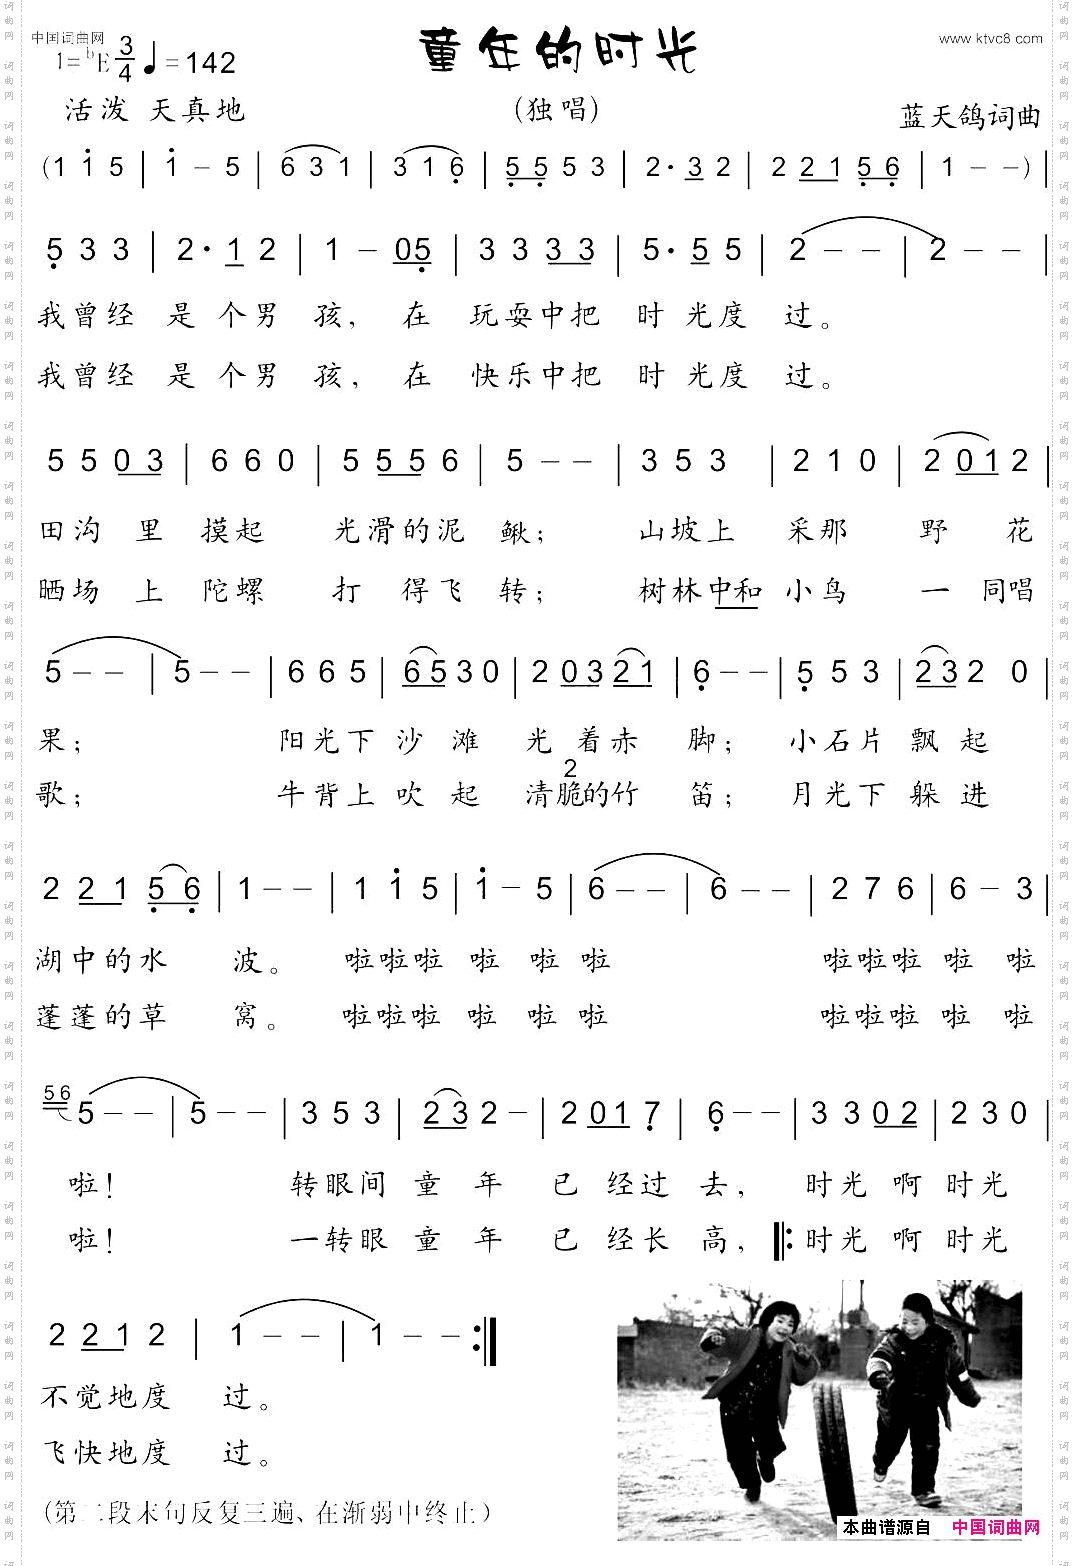 中国词曲网
童年的时光
www.ktvc8.com
1=♭E 3/4 ♩=142
活泼 天真地
(独唱)
蓝天鸽词曲
(1 i 5 | i - 5 | 6 3 1 | 3 1 6 | 5 5 5 3 | 2· 3 2 | 2 2 1 5 6 | 1 - - ) |
5 3 3 | 2· 1 2 | 1 - 0 5 | 3 3 3 3 | 5· 5 5 | 2 - - | 2 - - |
我曾经 是 个男 孩, 在 玩耍中把 时 光度 过。
我曾经 是 个男 孩, 在 快乐中把 时 光度 过。
5 5 0 3 | 6 6 0 | 5 5 5 6 | 5 - - | 3 5 3 | 2 1 0 | 2 0 1 2 |
田沟 里 摸起 光滑的泥 鳅; 山坡上 采那 野 花
晒场 上 陀螺 打 得飞 转; 树林中和 小鸟 一 同唱
5 - - | 5 - - | 6 6 5 | 6 5 3 0 | 2 0 3 2 1 | 6 - - | 5 5 3 | 2 3 2 0 |
果; 阳光下 沙 滩 光 着赤 脚; 小石片 飘 起
2
歌; 牛背上 吹 起 清脆的竹 笛; 月光下 躲 进
2 2 1 5 6 | 1 - - | 1 i 5 | i - 5 | 6 - - | 6 - - | 2 7 6 | 6 - 3 |
湖中的水 波。 啦啦啦 啦 啦 啦 啦啦啦 啦 啦
蓬蓬的草 窝。 啦啦啦 啦 啦 啦 啦啦啦 啦 啦
5 6 5 - - | 5 - - | 3 5 3 | 2 3 2 - | 2 0 1 7 | 6 - - | 3 3 0 2 | 2 3 0 |
啦! 转眼间 童 年 已 经过 去, 时光 啊 时光
啦! 一转眼 童 年 已 经长 高, ‖: 时光 啊 时光
2 2 1 2 | 1 - - | 1 - - :‖
不觉地度 过。
飞快地度 过。
(第二段末句反复三遍、在渐弱中终止)
本曲谱源自 中国词曲网